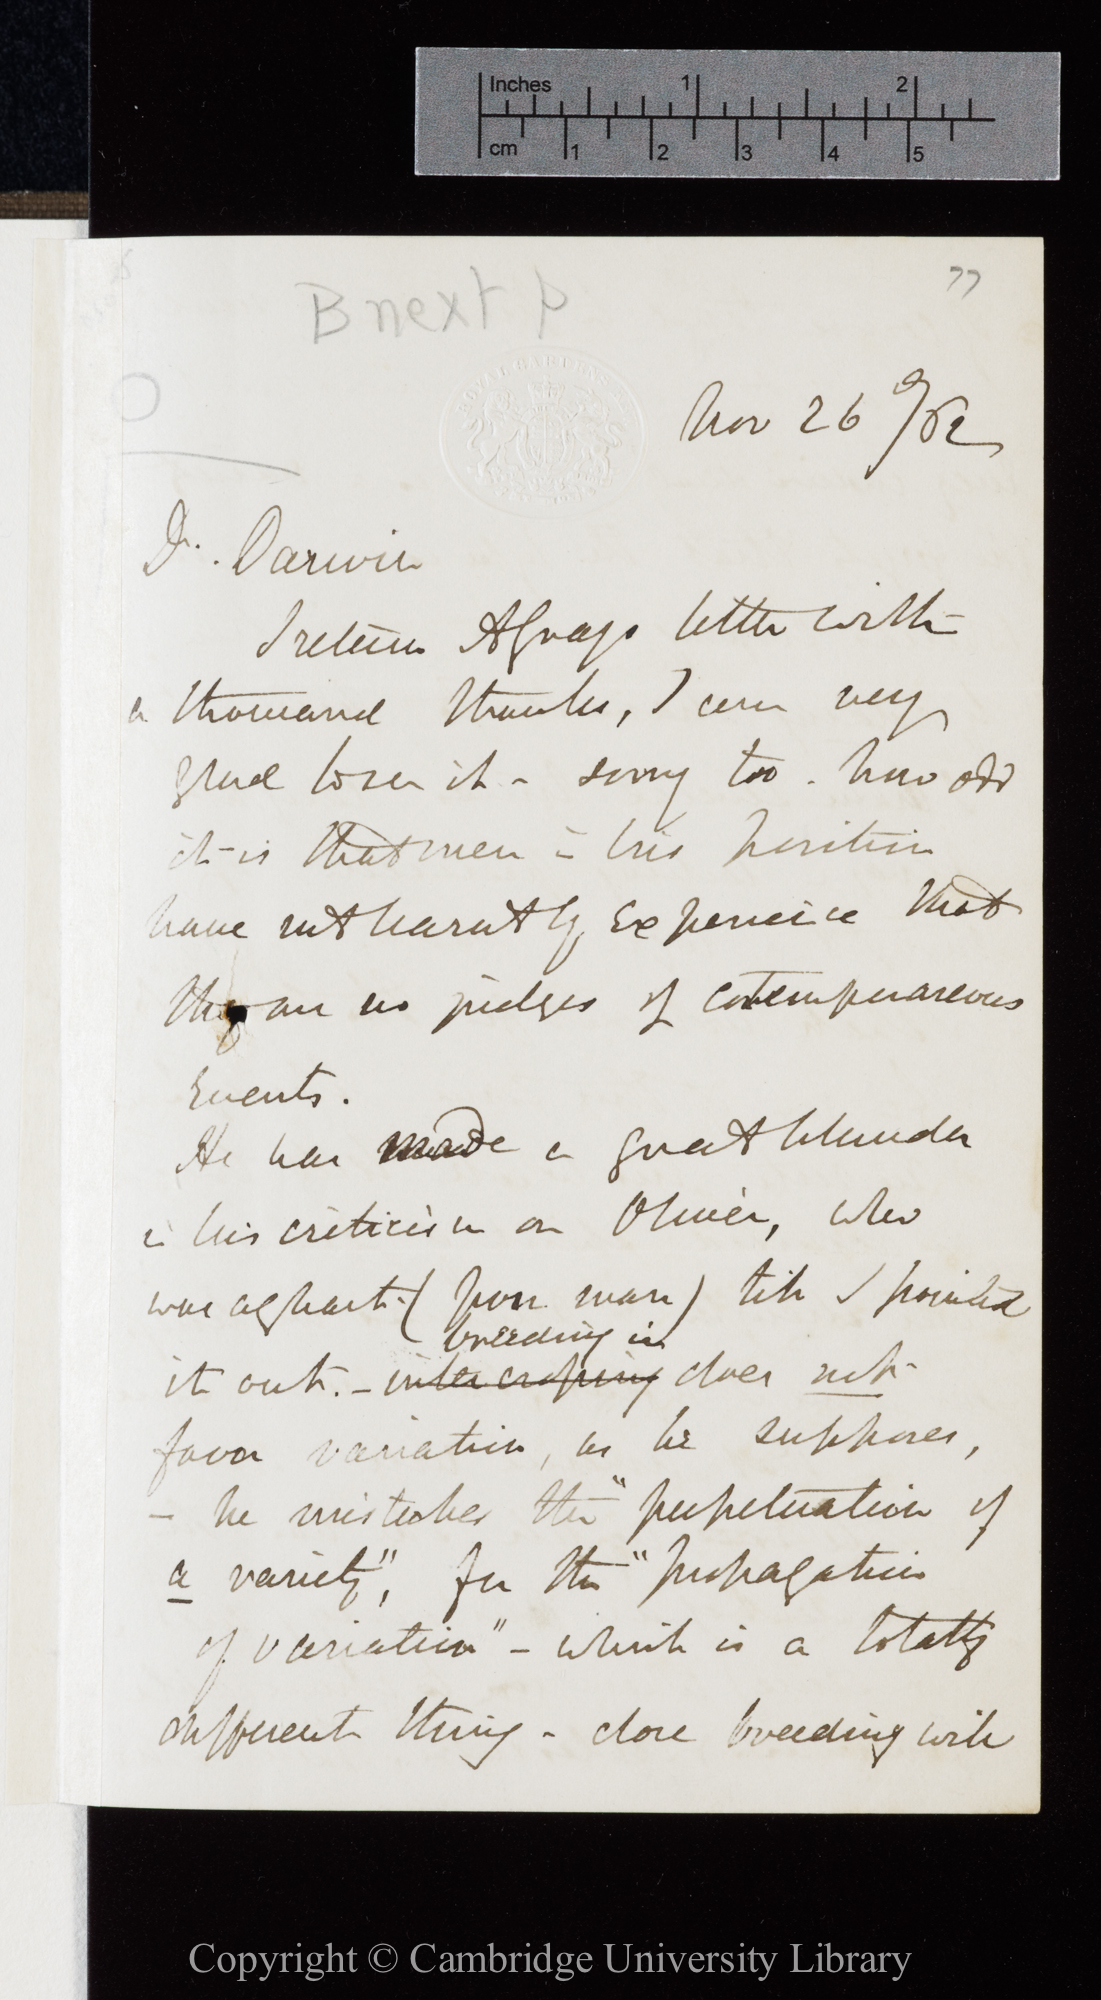 Inches 1 2
cm 1 2 3 4 5
B next p
77
Nov 26 /62
Dr. Darwin
I return A Grays letter with
a thousand thanks, I am very
glad to see it - sorry too. how odd
it is that men in his position
have not haratly Experience that
they are no judges of cotemporaneous
Events.
He has made a great blunder
in his criticism on Oliver, who
was aghast (poor man) till I pointed
breeding in
it out. - inter crossing does not
favor variation, as he supposes,
- he mistakes the "perpetuation of
a variety", for the "propagation
of variation" - which is a totally
different thing - close breeding will
Copyright © Cambridge University Library